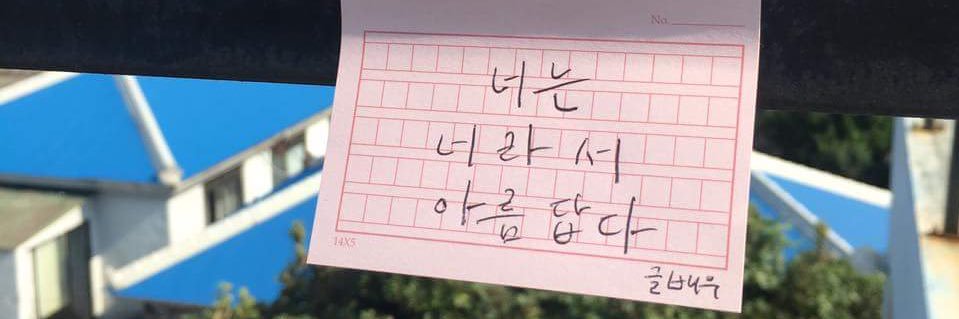 No.
너는
너라서
아름답다
14X5
글배우